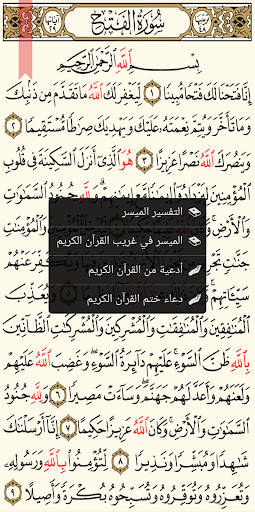 ترتيبها ٤٨ سُورَةُ الفَتْحِ آياتها ٢٩
بِسْمِ ٱللَّهِ ٱلرَّحْمَٰنِ ٱلرَّحِيمِ
إِنَّا فَتَحْنَا لَكَ فَتْحًا مُّبِينًا ١ لِّيَغْفِرَ لَكَ ٱللَّهُ مَا تَقَدَّمَ مِن ذَنۢبِكَ
وَمَا تَأَخَّرَ وَيُتِمَّ نِعْمَتَهُۥ عَلَيْكَ وَيَهْدِيَكَ صِرَٰطًا مُّسْتَقِيمًا ٢
وَيَنصُرَكَ ٱللَّهُ نَصْرًا عَزِيزًا ٣ هُوَ ٱلَّذِىٓ أَنزَلَ ٱلسَّكِينَةَ فِى قُلُوبِ
ٱلْمُؤْمِنِينَ وَلِلَّهِ جُنُودُ ٱلسَّمَٰوَٰتِ
وَٱلْأَرْضِ وَٱلْمُؤْمِنَٰتِ
جَنَّٰتٍ وَيُكَفِّرَ عَنْهُمْ
سَيِّـَٔاتِهِمْ وَيُعَذِّبَ
التفسير الميسر
الميسر في غريب القرآن الكريم
أدعية من القرآن الكريم
دعاء ختم القرآن الكريم
ٱلْمُنَٰفِقِينَ وَٱلْمُنَٰفِقَٰتِ وَٱلْمُشْرِكِينَ وَٱلْمُشْرِكَٰتِ ٱلظَّآنِّينَ
بِٱللَّهِ ظَنَّ ٱلسَّوْءِ ۚ عَلَيْهِمْ دَآئِرَةُ ٱلسَّوْءِ ۖ وَغَضِبَ ٱللَّهُ عَلَيْهِمْ
وَلَعَنَهُمْ وَأَعَدَّ لَهُمْ جَهَنَّمَ ۖ وَسَآءَتْ مَصِيرًا ٦ وَلِلَّهِ جُنُودُ
ٱلسَّمَٰوَٰتِ وَٱلْأَرْضِ ۚ وَكَانَ ٱللَّهُ عَزِيزًا حَكِيمًا ٧ إِنَّآ أَرْسَلْنَٰكَ
شَٰهِدًا وَمُبَشِّرًا وَنَذِيرًا ٨ لِّتُؤْمِنُوا۟ بِٱللَّهِ وَرَسُولِهِۦ
وَتُعَزِّرُوهُ وَتُوَقِّرُوهُ وَتُسَبِّحُوهُ بُكْرَةً وَأَصِيلًا ٩